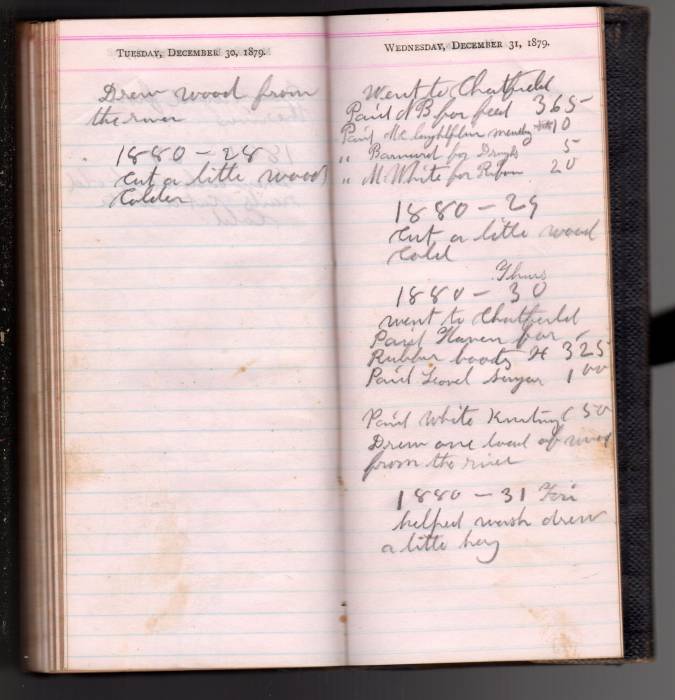 TUESDAY, DECEMBER 30, 1879.
Drew wood from
the river
1880 - 28
cut a little wood
Colder
WEDNESDAY, DECEMBER 31, 1879.
Went to Chatfield
Paid N B for feed 365
Paid McLaughlin mending 10
" Barnard for Drugs 5
" M White for 20
1880 - 29
cut a little wood
cold
Thurs
1880 - 30
went to Chatfield
Paid Haven for
Rubber boots 325
Paid sugar 1 00
Paid White 50
Drew one load of wood
from the river
1880 - 31 Fri
helped wash drew
a little hay